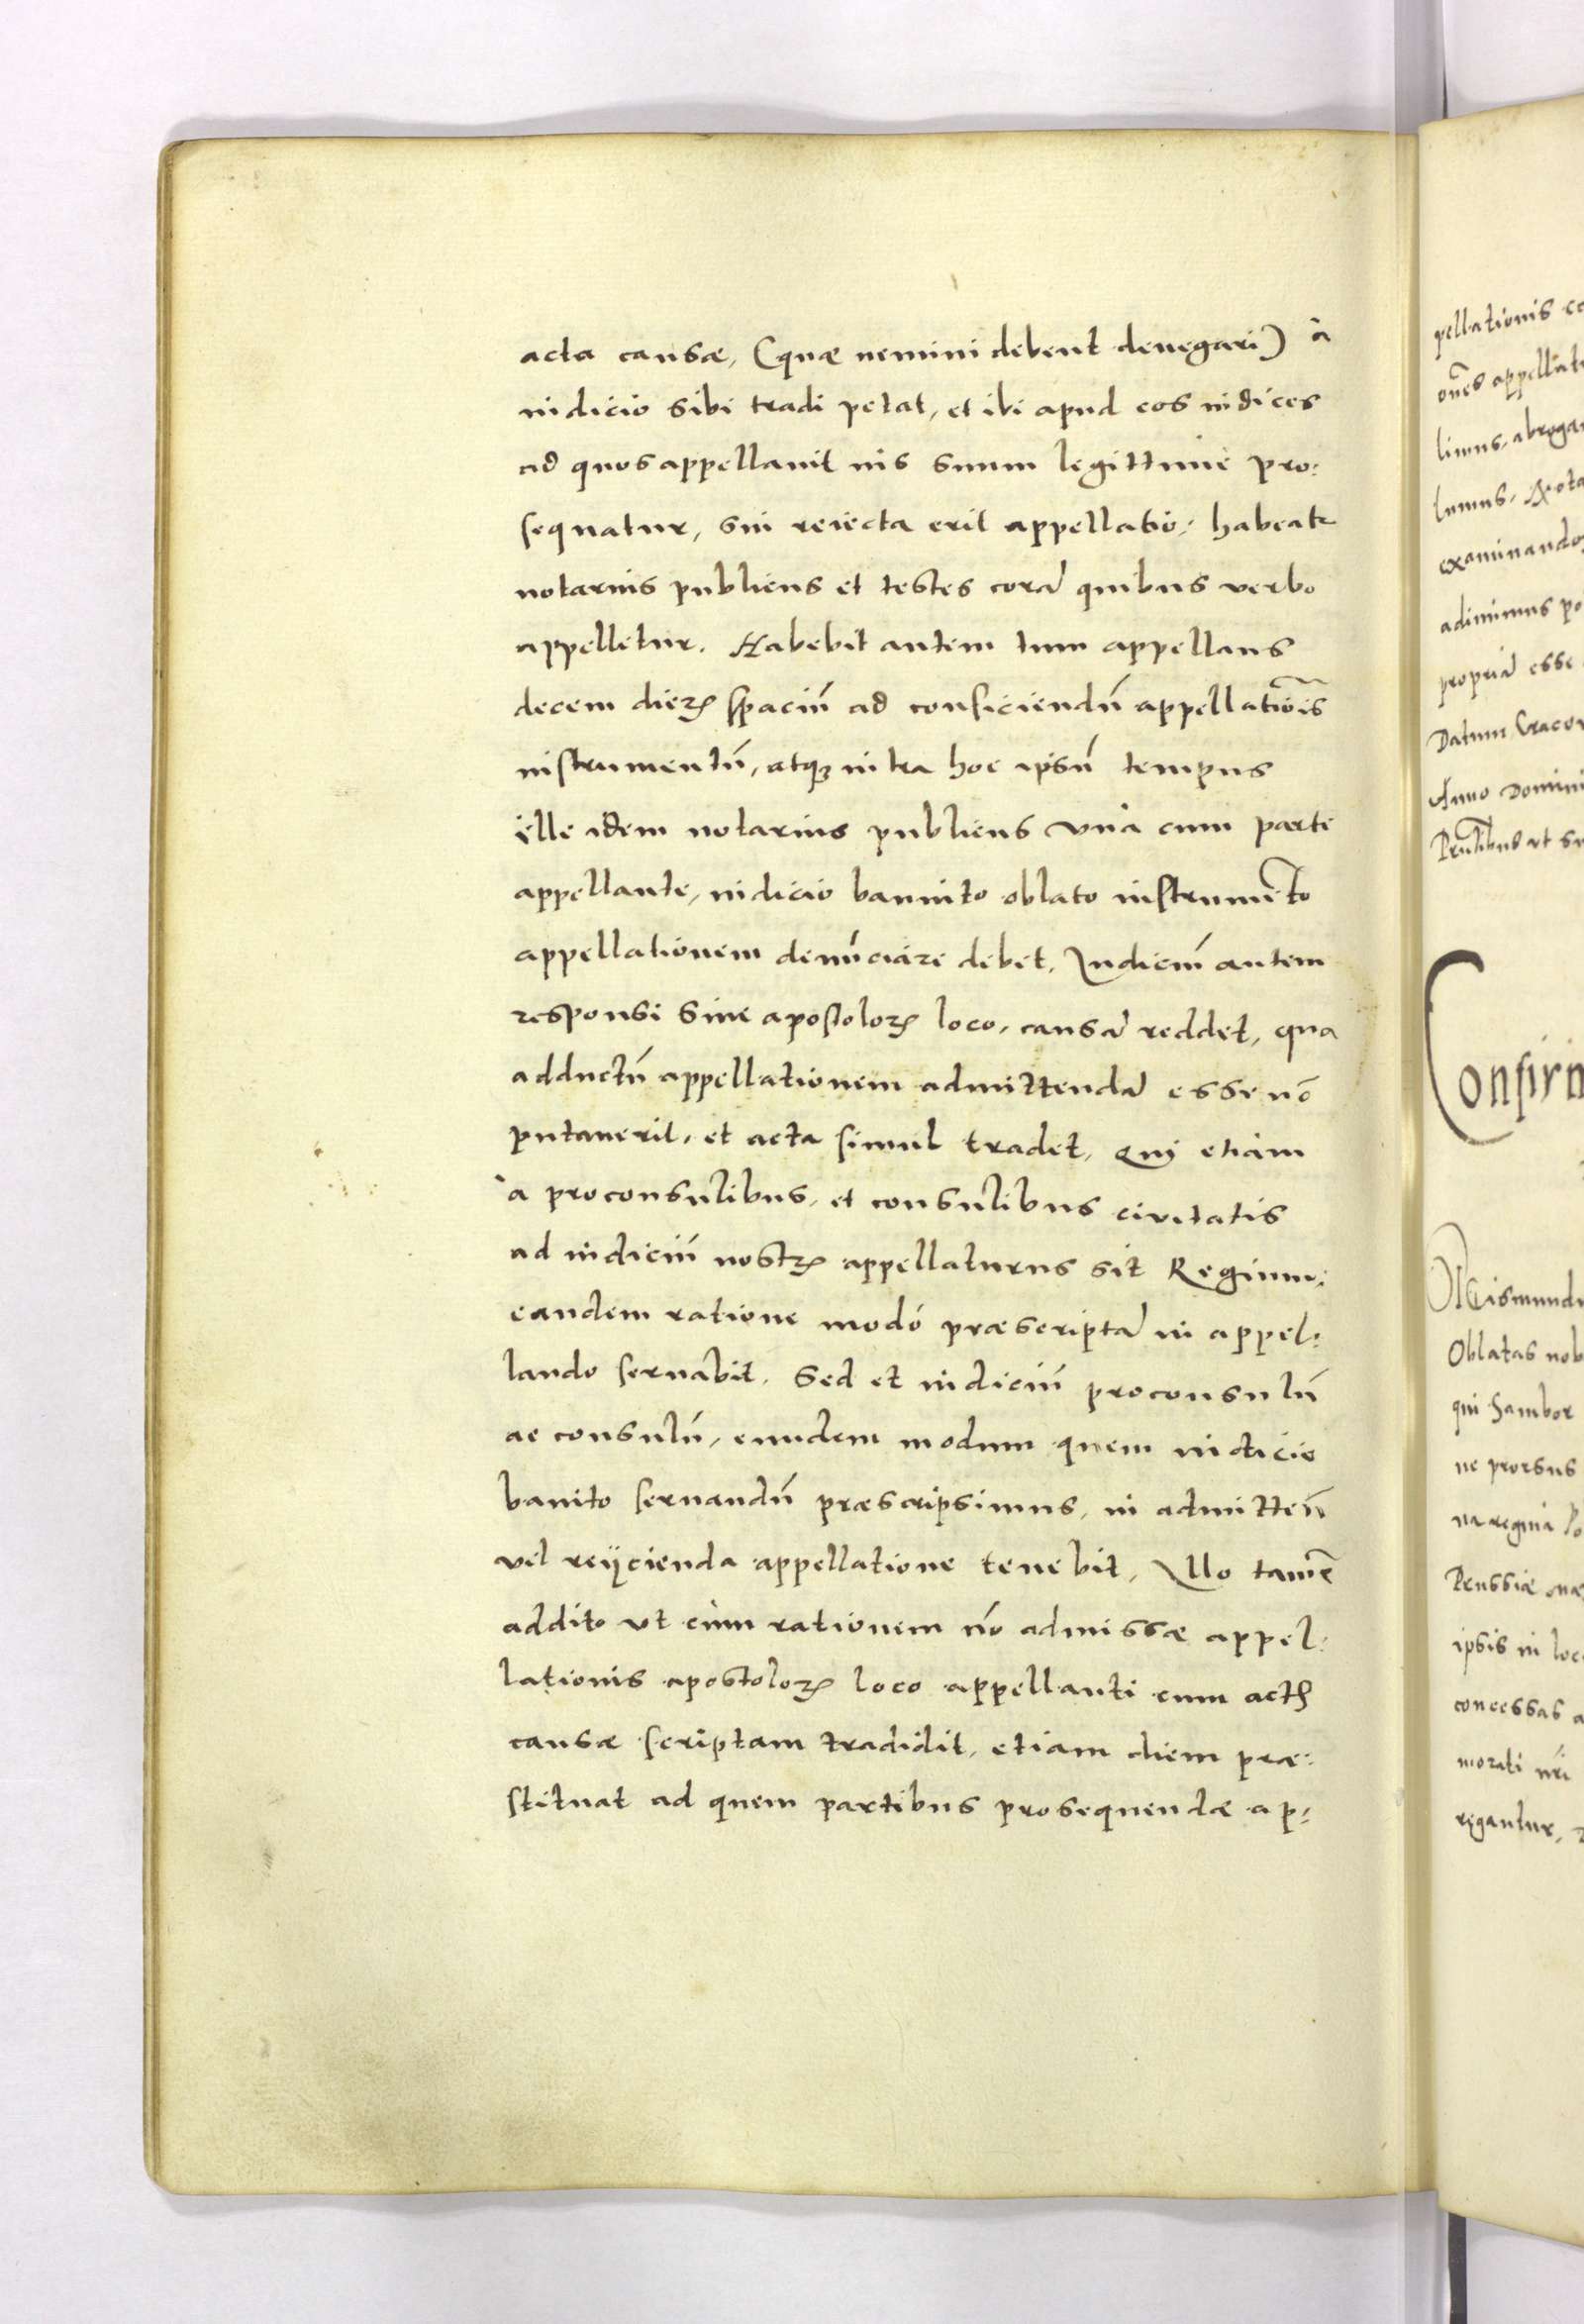 acta causæ, (quæ nemini debent denegari) à
iudicio sibi tradi petat, et ibi apud eos iudices
ad quos appellauit ius suum legittime pro:
sequatur, sin reiecta erit appellatio, habeatr
notarius publicus et testes corā quibus verbo
appelletur. Habebit autem tum appellans
decem dierꝝ spaciū ad conficiendū appellatiōis
instrumentū, atqꝫ intra hoc ipsū tempus
ille idem notarius publicus vnà cum parte
appellante, iudicio bannito oblato instrumēto
appellationem denūciare debet. Iudiciū autem
responsi siue apostolorꝝ loco, causā reddet, qua
adductū appellationem admittendā esse nō
putauerit, et acta simul tradet, Qui etiam
à proconsulibus, et consulibus ciuitatis
ad iudiciū nostrꝝ appellaturus sit Regium:
eandem ratione modò præscriptā in appel:
lando seruabit. Sed et iudiciū proconsulū
ac consulū, eundem modum quem iudicio
banito seruandū præscripsimus, in admitten̄
vel reijcienda appellatione tenebit, Illo tamē
addito vt cùm rationem nō admissæ appel:
lationis apostolorꝝ loco appellanti cum actꝭ
causæ scriptam tradidit, etiam diem præ:
stituat ad quem partibus prosequendæ ap:
pellationis
appellat
abroga
examinando
adimimus po
propriā esse
Datum Craco
Anno Domini
vt
Confirm
Oblatas nob
qui Sambor
ne prorsus
Prussiæ
ipsis in loc
concessas a
morati nr̄i
regantur,